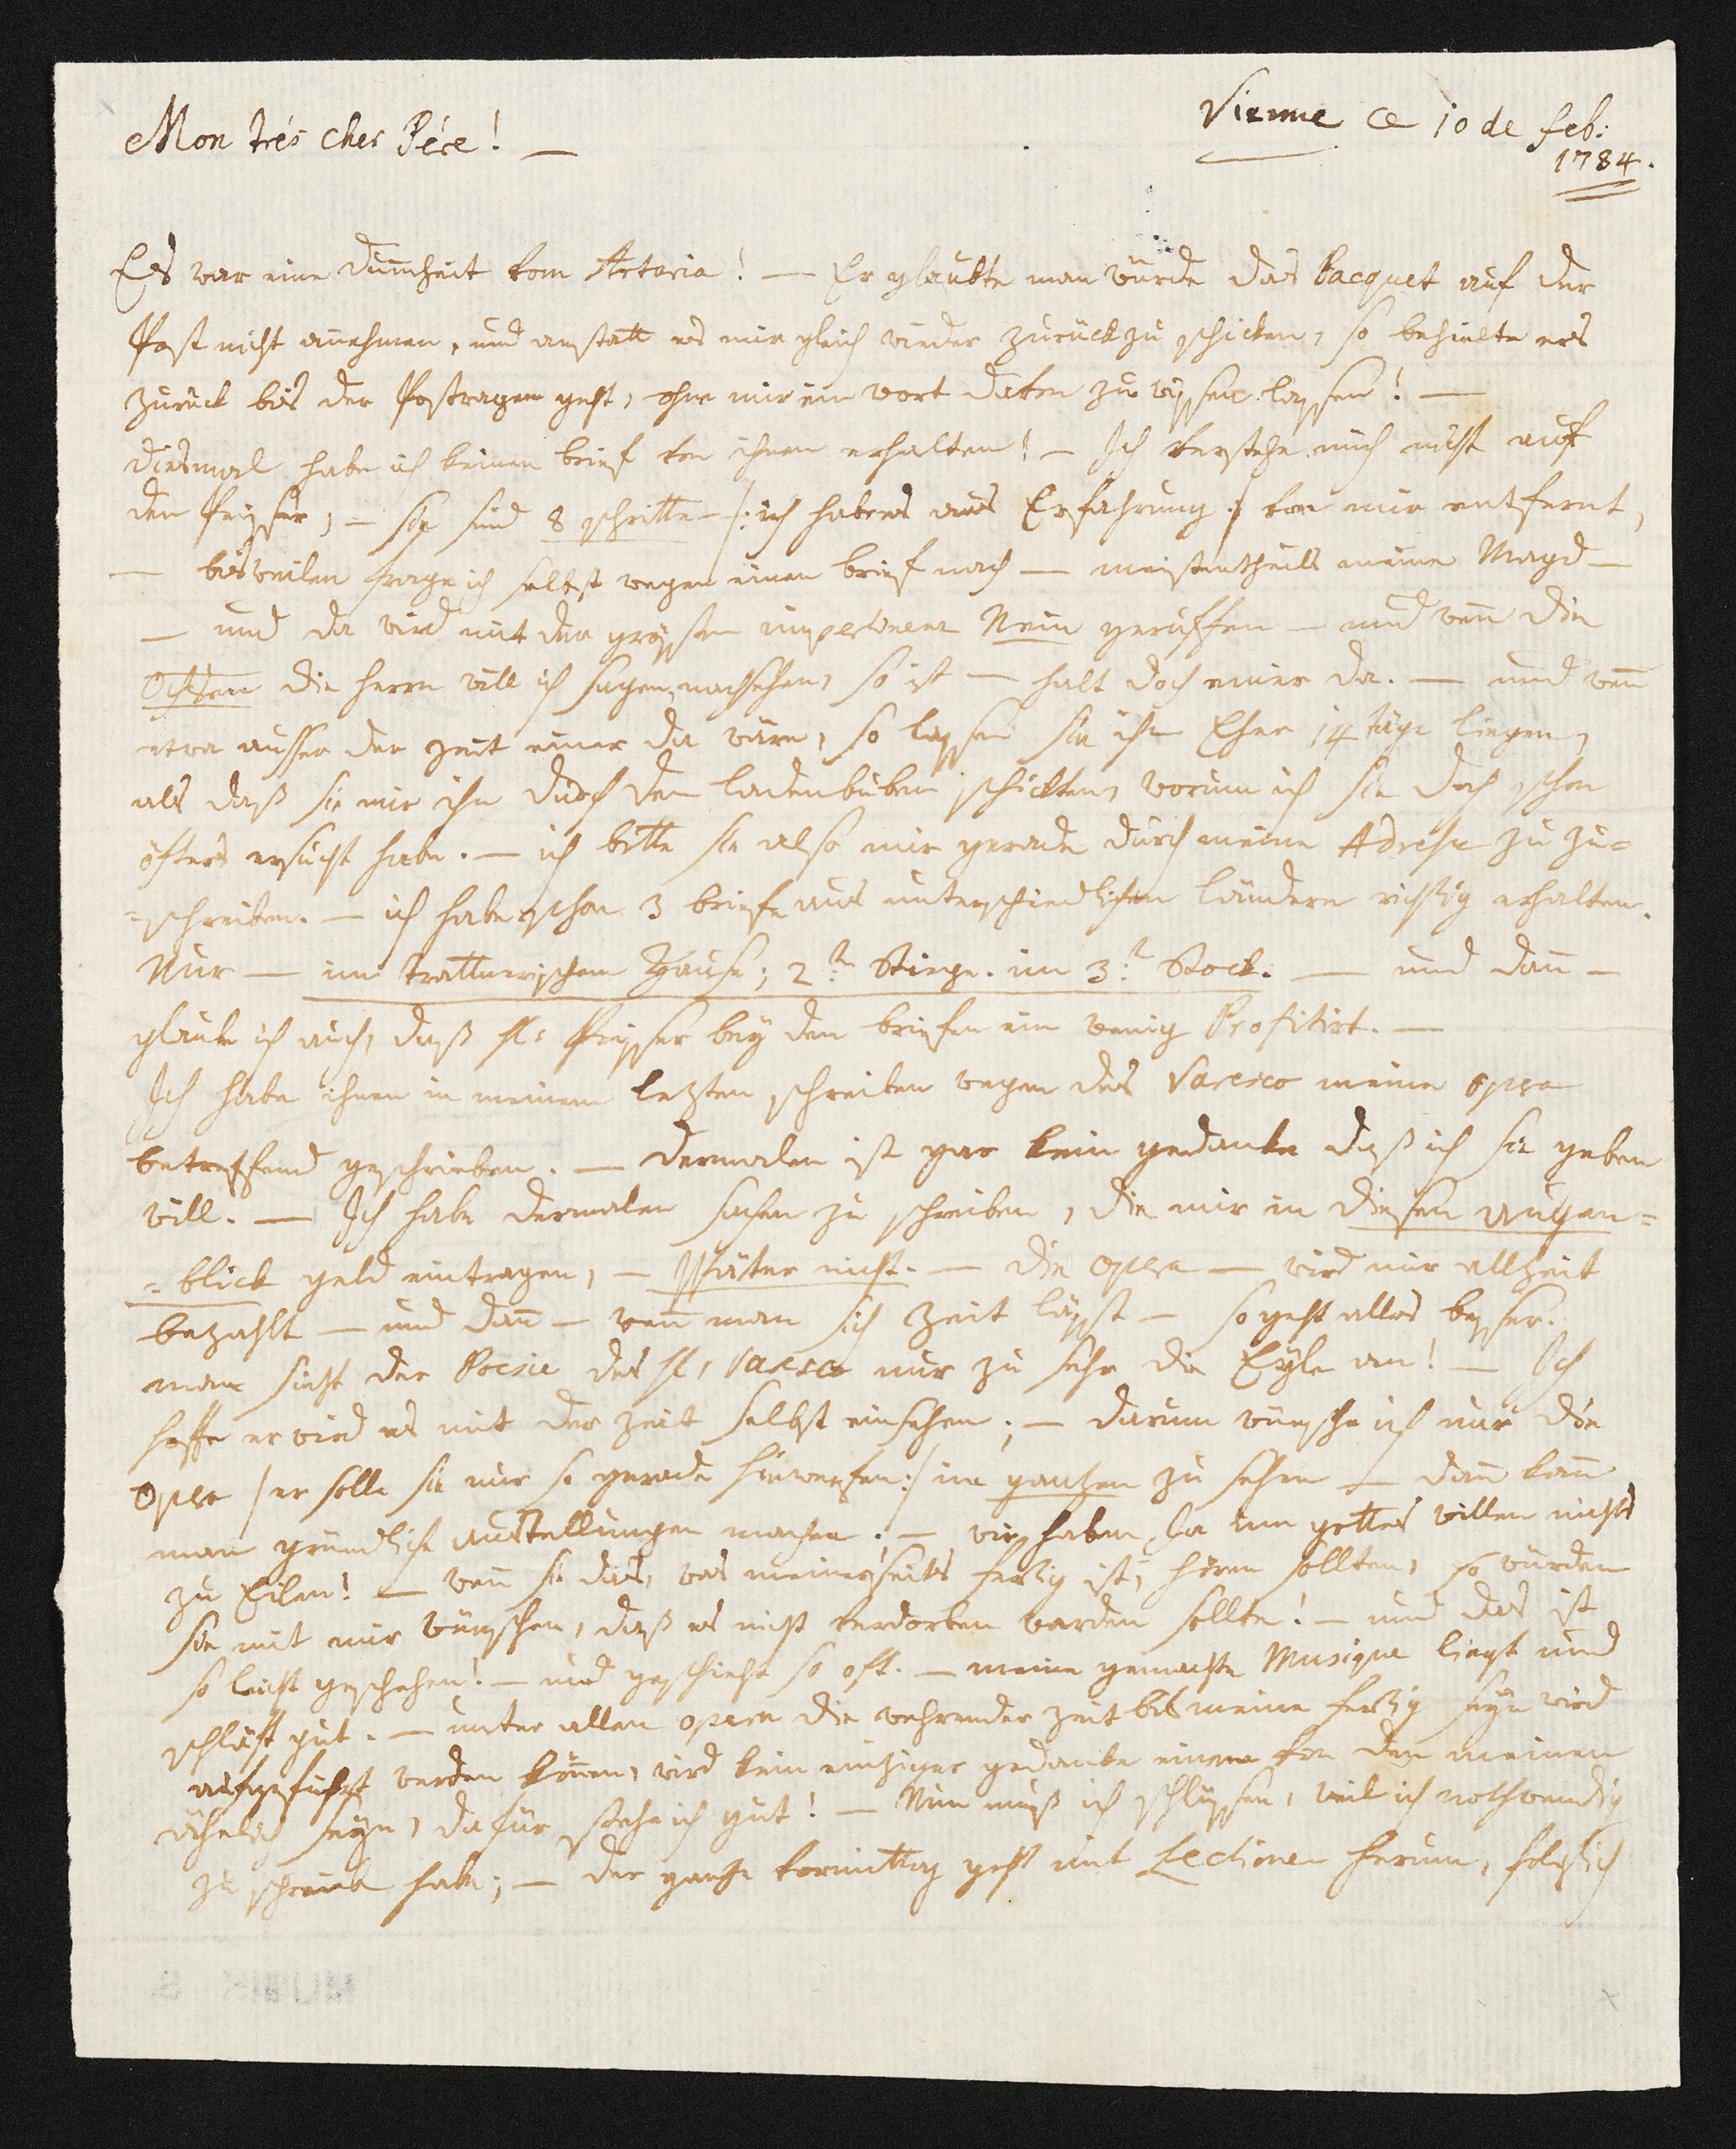 Mon trés cher Pére! —
Vienne ce 10 de feb:
1784.
Es war eine dummheit vom Artaria! — Er glaubte man würde das Pacquet auf der
Post nicht annehmen, und anstatt es mir gleich wieder zurückzuschicken, so behielte ers
zurück bis der Postwagen geht, ohne mir ein wort davon zu wissen lassen! —
diesmal habe ich keinen brief von ihnen erhalten! — Ich verstehe mich nicht auf
den Peisser; — sie sind 8 schritte — /: ich habe es aus Erfahrung :/ von mir entfernt,
— bisweilen frage ich selbst wegen einen brief nach — meistentheils meine Magd —
— und da wird mit der grössten impertinenz Nein geruffen — und wenn die
Ochsen die herrn will ich sagen, nachsehen, so ist — halt doch einer da. — und wenn
etwa ausser der zeit einer da wäre, so lassen sie ihn Eher 14 täge liegen,
als daß sie mir ihn durch den ladenbuben schickten, worum ich sie doch schon
öfters ersucht habe. — ich bitte sie also mir gerade durch meine Adresse zu zu=
=schreiben. — ich habe schon 3 briefe aus unterschiedlichen ländern richtig erhalten.
Nur — im trattnerischen Hause; 2:te Stiege. im 3:t Stock. — und dann —
glaube ich auch, daß H: Peisser bey den briefen ein wenig Profitirt. —
Ich habe ihnen in meinem letzten schreiben wegen des Varesco meine opera
betreffend geschrieben. — dermalen ist gar kein gedanke daß ich sie geben
will. — Ich habe dermalen sachen zu schreiben, die mir in diesen augen=
=blick geld eintragen, — später nicht. — die opera — wird mir allzeit
bezahlt — und dann — wenn man sich zeit lässt — so geht alles besser.
man sieht der Poesie des H: varesco nur zu sehr die Eyle an! — Ich
hoffe er wird es mit der zeit selbst einsehen; — darum wünsche ich nur die
Opera /: er solle sie nur so gerade hinwerfen :/ im ganzen zu sehen — dann kann
man gründliche ausstellungen machen; — wir haben Ja um gottes willen nichts
zu Eilen! — wenn sie das, was meinerseits fertig ist, hören sollten, so würden
sie mit mir wünschen, daß es nicht verdorben werden sollte! — und das ist
so leicht geschehen! — und geschieht so oft. — meine gemachte Musique liegt und
schläft gut. — unter allen opern die wehrender zeit bis meine fertig seyn wird
aufgeführt werden können, wird kein einziger gedanke einem von den meinen
ähnlich seyn, dafür stehe ich gut! — Nun muß ich schlüssen, weil ich nothwendig
zu schreiben habe; — der ganze vormittag geht mit Lectionen herum, folglich